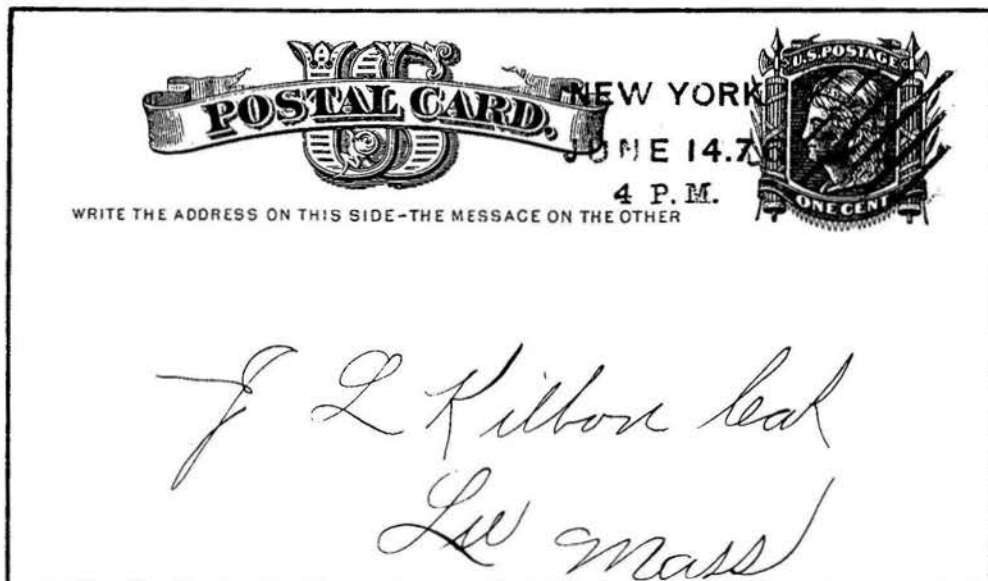 US
POSTAL CARD,
NEW YORK
JUNE 14.76
4 P.M.
U.S. POSTAGE
ONE CENT
WRITE THE ADDRESS ON THIS SIDE-THE MESSAGE ON THE OTHER
J L Kilbon
Lee Mass